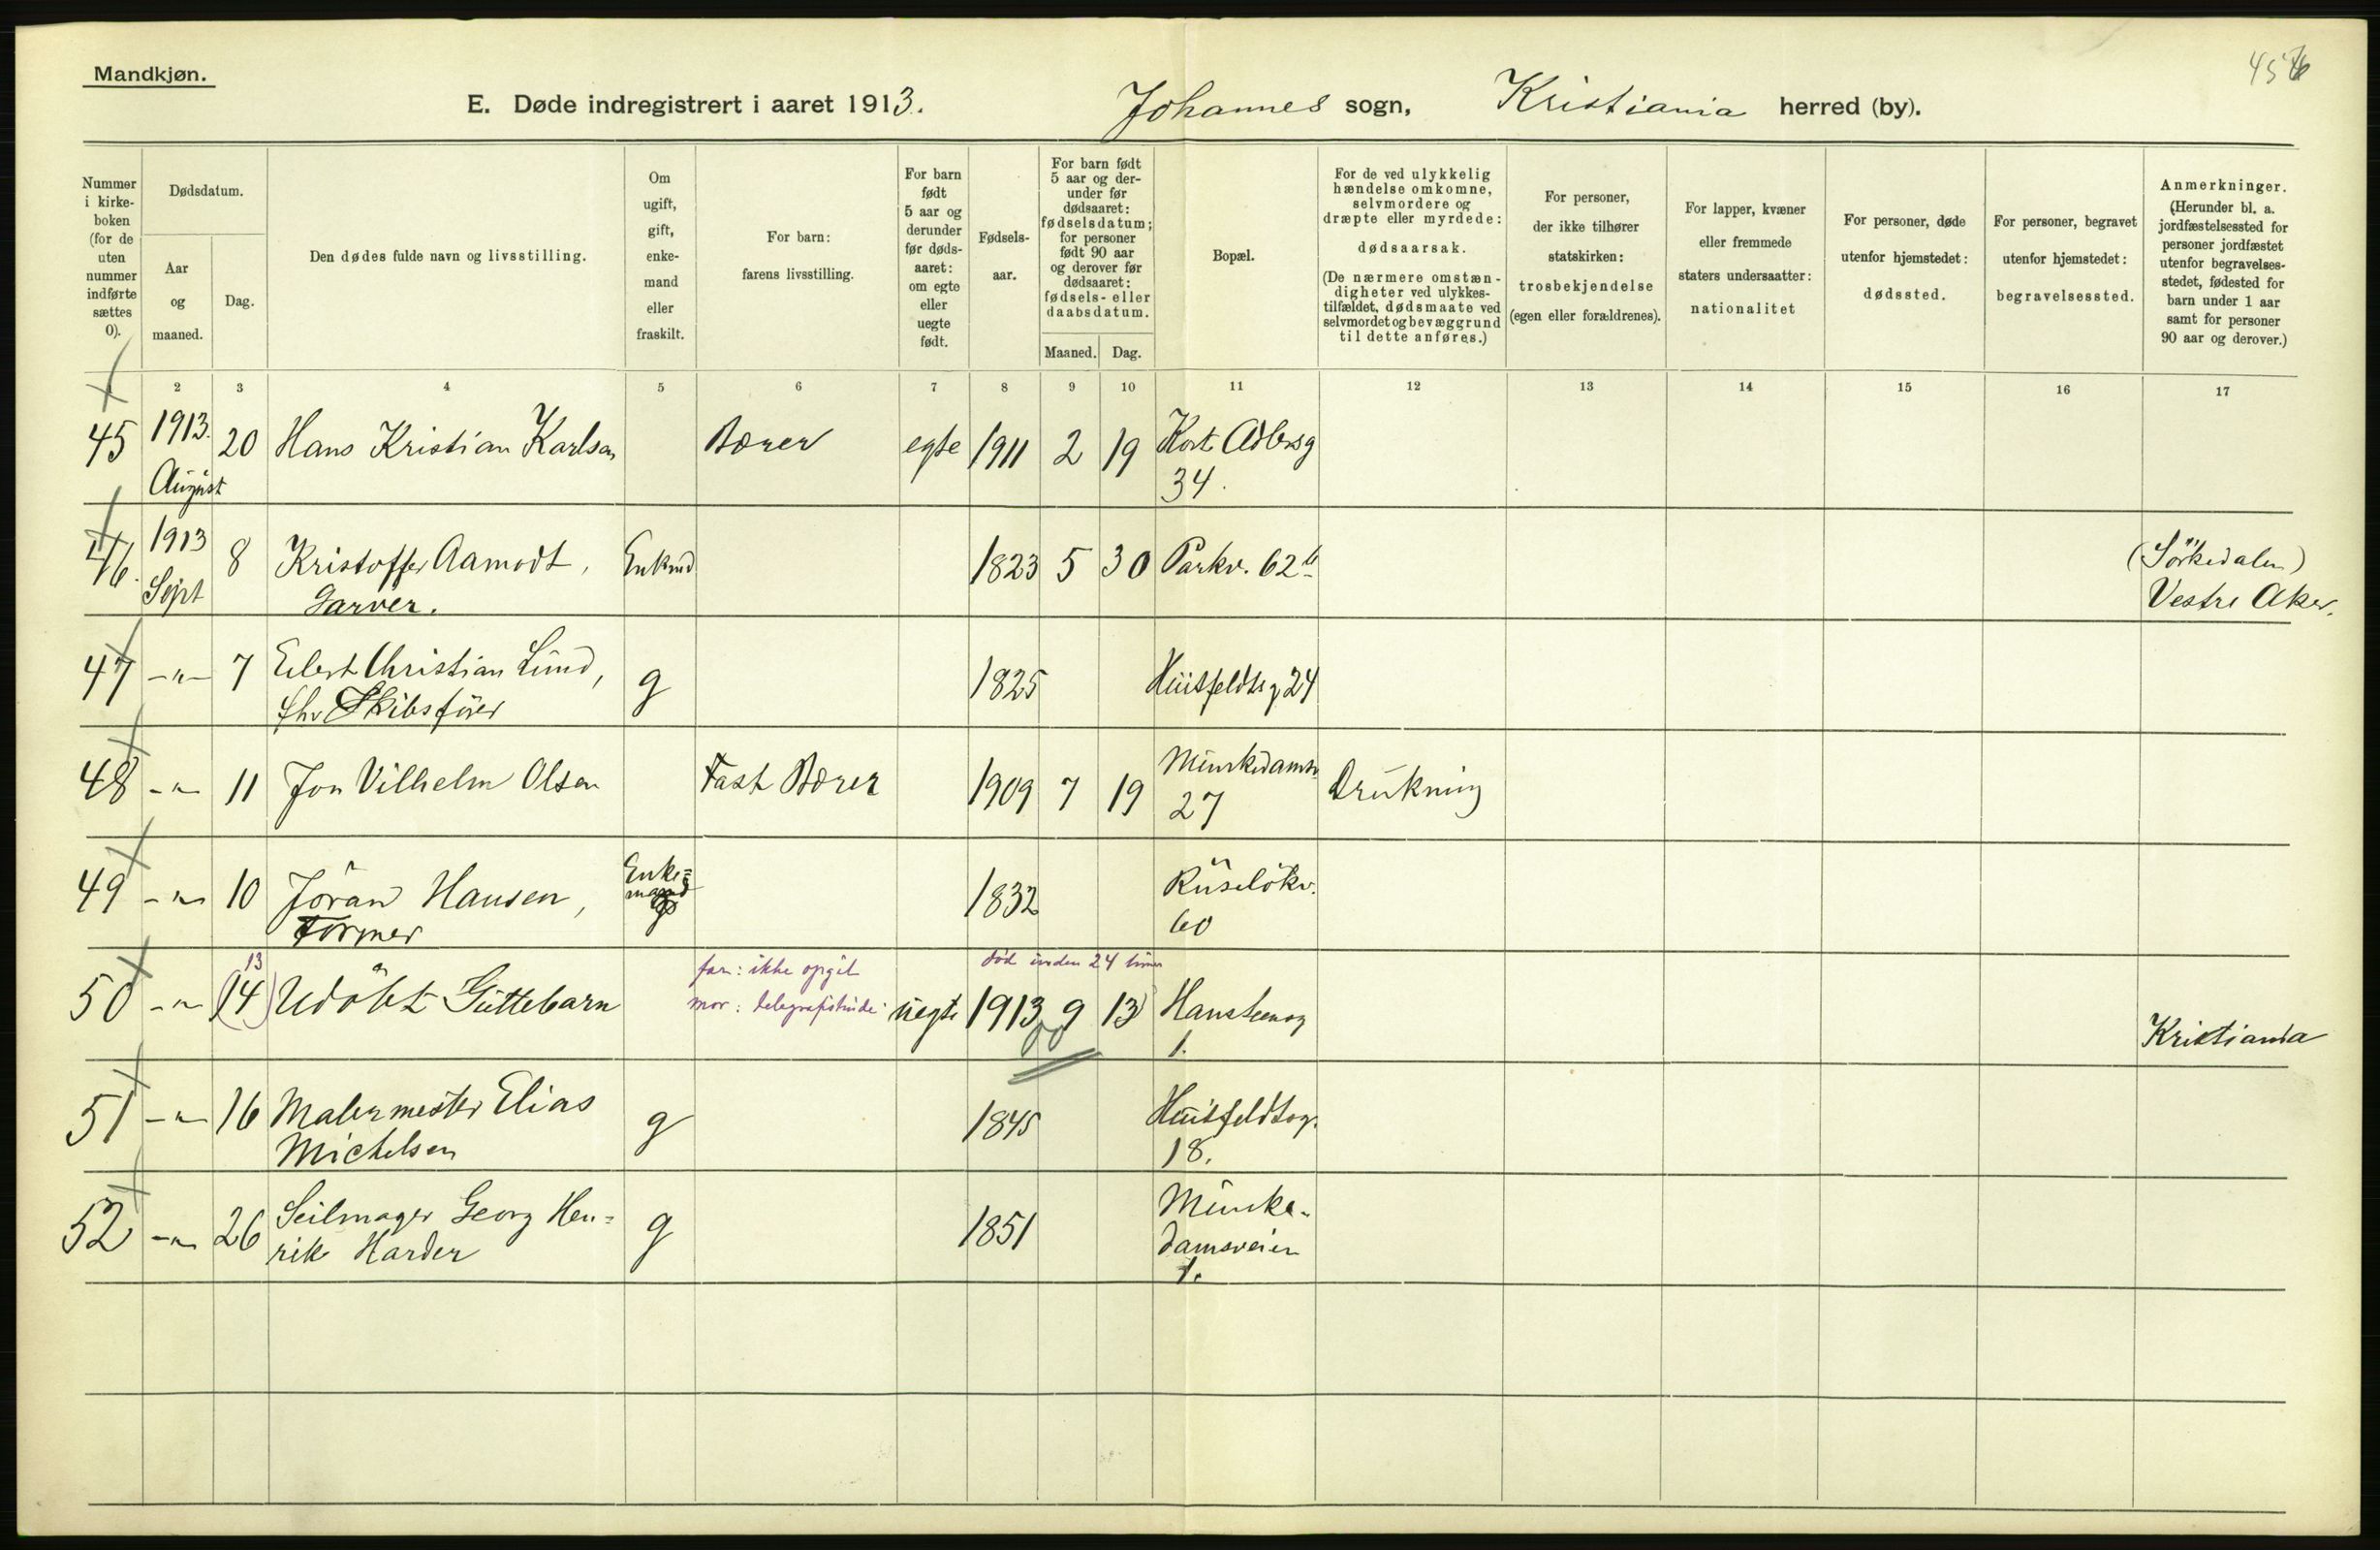 Mandkjøn.
E. Døde indregistrert i aaret 1913. Johannes sogn, Kristiania herred (by).
Nummer i kirke-boken (for de uten nummer indførte sættes 0).
Dødsdatum.
Aar og maaned.
Dag.
Den dødes fulde navn og livsstilling.
Om ugift, gift, enke-mand eller fraskilt.
For barn: farens livsstilling.
For barn født 5 aar og derunder før døds-aaret: om egte eller uegte født.
Fødsels-aar.
For barn født 5 aar og der-under før dødsaaret: fødselsdatum; for personer født 90 aar og derover før dødsaaret: fødsels- eller daabsdatum.
Maaned. Dag.
Bopæl.
For de ved ulykkelig hændelse omkomne, selvmordere og dræpte eller myrdede: dødsaarsak. (De nærmere omstæn-digheter ved ulykkes-tilfældet, dødsmaate ved selvmordet og bevæggrund til dette anføres.)
For personer, der ikke tilhører statskirken: trosbekjendelse (egen eller forældrenes).
For lapper, kvæner eller fremmede staters undersaatter: nationalitet
For personer, døde utenfor hjemstedet: dødssted.
For personer, begravet utenfor hjemstedet: begravelsessted.
Anmerkninger. (Herunder bl. a. jordfæstelsessted for personer jordfæstet utenfor begravelses-stedet, fødested for barn under 1 aar samt for personer 90 aar og derover.)
1 2 3 4 5 6 7 8 9 10 11 12 13 14 15 16 17
45 1913. August 20 Hans Kristian Karlsen Bærer egte 1911 2 19 Kort Adlersg
34.
46. 1913 Sept 8 Kristoffer Aamodt, Enkmd 1823 5 30 Parkv. 62 b (Sörkedalen)
Garver. Vestre Aker.
47 -"- 7 Eilert Christian Lund, g 1825 Huitfeldts g 24
fhv Skibsförer
48 -"- 11 Jon Vilhelm Olsen Fast Bærer 1909 7 19 Munkedamsv
27 Drukning
49 -"- 10 Jöran Hansen, Enke=
mand 1832 Ruselökv.
Former 60
50 -"- 13 (14) Udöbt Guttebarn far: ikke opgit død inden 24 timer
mor: telegrafistinde uegte 1913 9 13 Hansteensg
1. Kristiania
51 -"- 16 Malermester Elias g 1845 Huitfeldtsg.
Michelsen 18.
52 -"- 26 Seilmager Georg Hen= g 1851 Munke-
rik Harder damsveien
1.